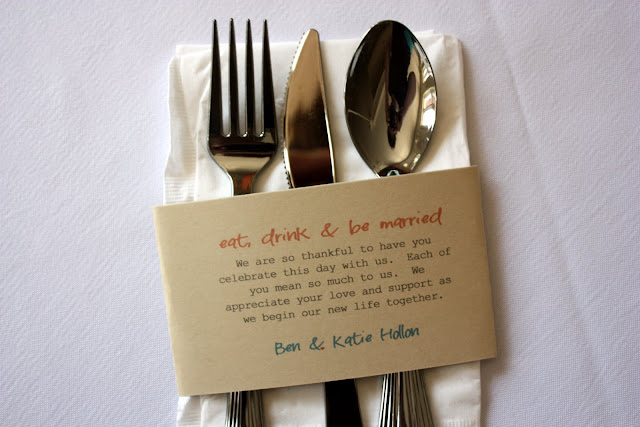 eat, drink & be married
We are so thankful to have you
celebrate this day with us. Each of
you mean so much to us. We
appreciate your love and support as
we begin our new life together.
Ben & Katie Hollon